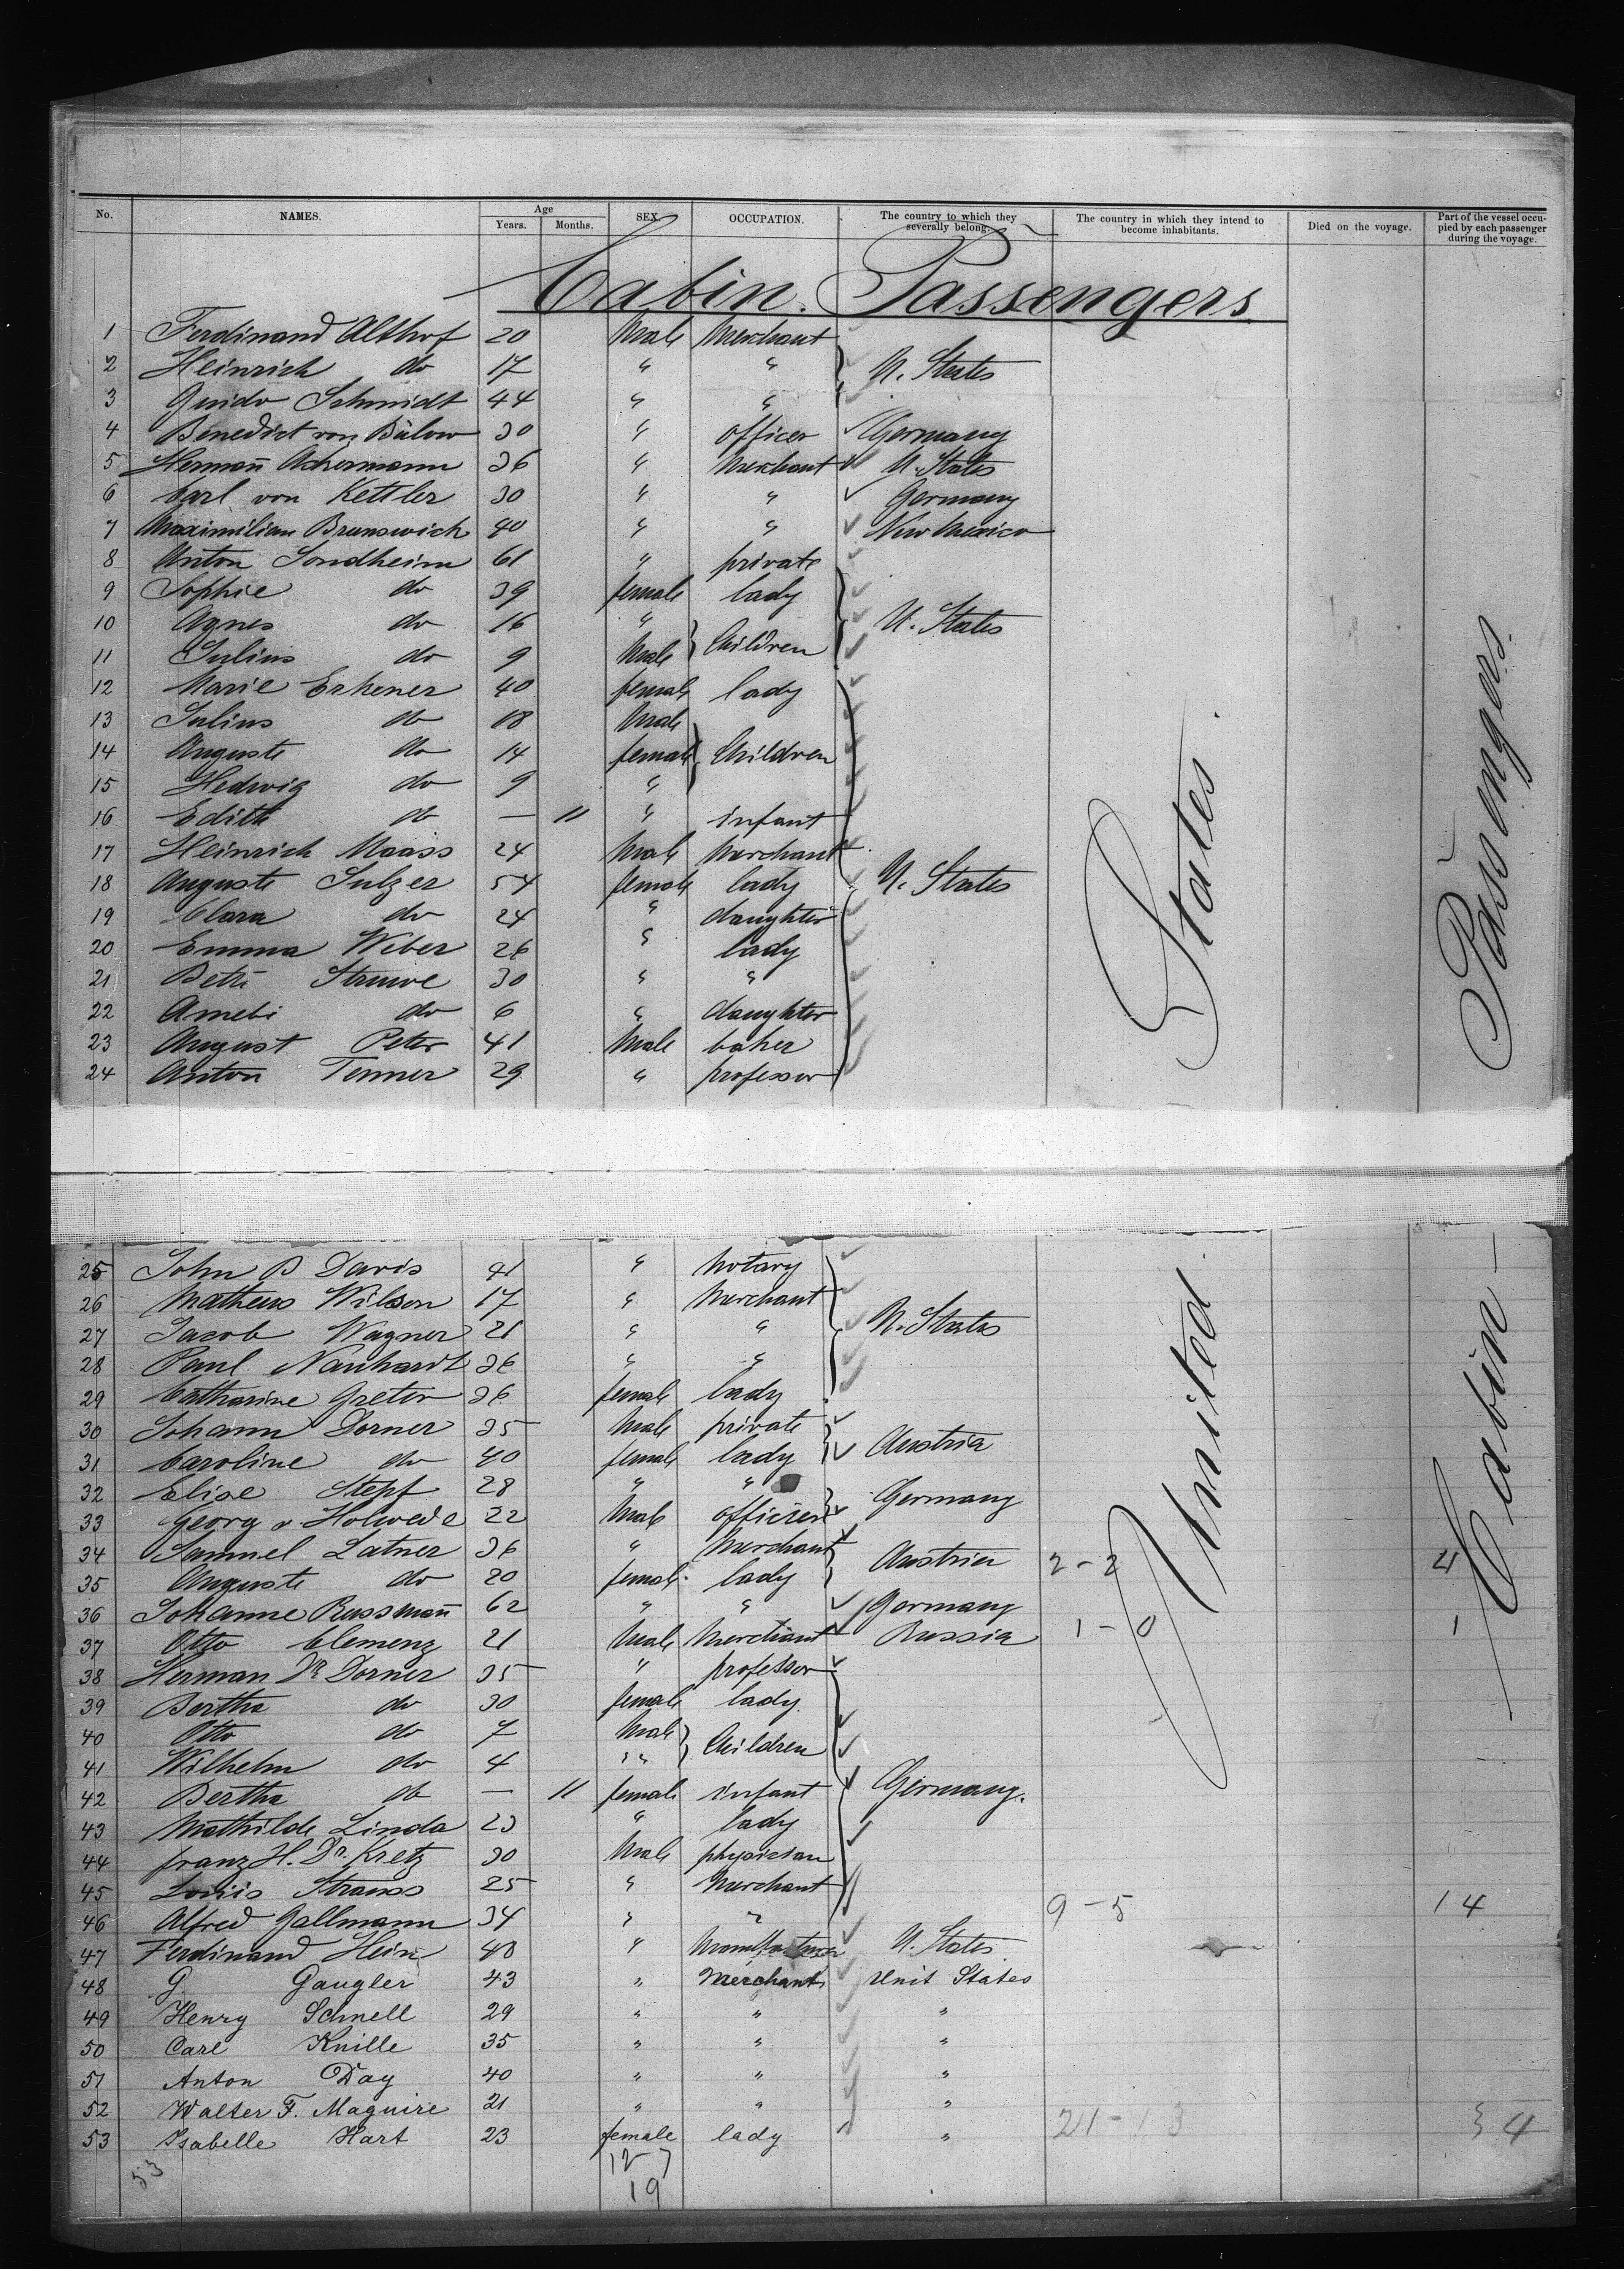 No. NAMES. Age Years. Months. SEX. OCCUPATION. The country to which they severally belong. The country in which they intend to become inhabitants. Died on the voyage. Part of the vessel occupied by each passenger during the voyage.
Cabin. Passengers
1 Ferdinand Althof 20 Male Merchant
2 Heinrich do 17 " " U. States
3 Guido Schmidt 44 " "
4 Benedict von Bülow 30 " officer Germany
5 Hermañ Ackermann 36 " Merchant U. States
6 Carl von Kettler 30 " " Germany
7 Maximilian Brunswick 40 " " New Mexico
8 Anton Sondheim 61 " private
9 Sophie do 39 female lady
10 Agnes do 16 " Children U. States
11 Julius do 9 Male
12 Marie Erkener 40 female lady
13 Julius do 18 Male
14 Auguste do 14 female Children
15 Hedwig do 9 "
16 Edith do — 11 " infant
17 Heinrich Maass 24 Male Merchant
18 Auguste Sulzer 54 female lady U. States
19 Clara do 24 " daughter
20 Emma Weber 26 " lady
21 Betti Struwe 30 " "
22 do 6 " daughter
23 August Peter 41 Male baker
24 Anton Tenner 29 " professor
25 John B Davis 41 " Notary
26 Matheus Wilson 17 " Merchant
27 Jacob Wagner 21 " " U. States
28 Paul Nanhardt 36 " "
29 Catharine Greter 36 female lady
30 Johann Dorner 35 Male private
31 Caroline do 40 female lady Austria
32 Elise Stepf 28 " "
33 Georg v Holwede 22 Male officier Germany
34 Samuel Latner 36 " Merchant Austria 2-2 4
35 Auguste do 20 female lady
36 Johanne Russmañ 62 " " Germany
37 Otto Clemenz 21 Male Merchant Russia 1-0 1
38 Herman Dr Dorner 35 " professor
39 Bertha do 30 female lady
40 Otto do 7 Male Children
41 Wilhelm do 4 "
42 Bertha do — 11 female infant Germany.
43 Mathilde Linda 23 " lady
44 franz H. Dr. Kretz 30 Male physician
45 Louis Strauss 25 " Merchant
46 Alfred Gallmann 34 " " 9-5 14
47 Ferdinand Hein 40 " U. States
48 G. Gaugler 43 " Merchant Unit States
49 Henry Schnell 29 " " "
50 Carl Knille 35 " " "
51 Anton Day 40 " " "
52 Walter F. Maguire 21 " " "
53 Isabelle Hart 23 female lady " 21-13 34
53 12-7
19
United States.
Cabin Passengers.